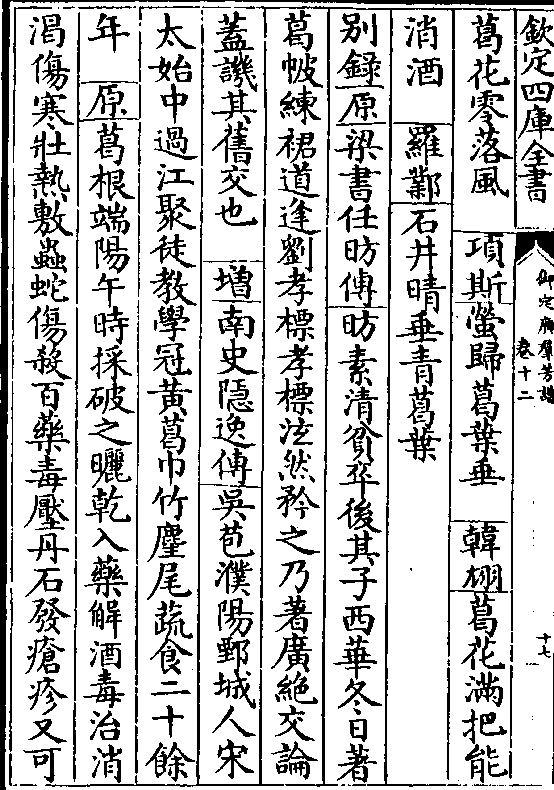 欽定四庫全書
御定廣羣芳譜
卷十二
十七
葛花零落風　項斯螢歸葛葉垂　韓栩葛花滿把能
消酒　羅鄴石井晴垂青葛葉
別録原梁書任昉傳昉素清貧卒後其子西華冬日著
葛帔練裙道逢劉孝標孝標泫然矜之乃著廣絶交論
蓋譏其舊交也　增南史隱逸傳吳苞濮陽鄄城人宋
太始中過江聚徒教學冠黃葛巾竹麈尾蔬食二十餘
年　原葛根端陽午時採破之曬乾入藥解酒毒治消
渴傷寒壯熱敷蟲蛇傷殺百藥毒壓丹石發瘡疹又可